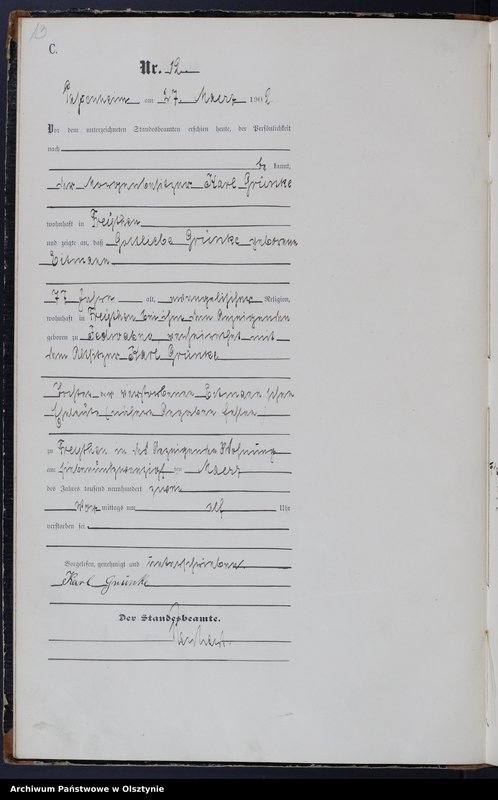 13
C.
Nr. 12
am 27 Maerz 1902.
Vor dem unterzeichneten Standesbeamten erschien heute, der Persönlichkeit
nach
be kannt,
der Karl Grünke
wohnhaft in Freythen
und zeigte an, daß Gottliebe Grünke geborene
77 Jahre alt, evangelischer Religion,
wohnhaft in Freythen bei dem Anzeigenden
geboren zu Jedwabno verheirathet mit
dem Altsitzer Karl Grünke
Tochter der verstorbenen
Eheleute fehlen
zu Freythen in des Anzeigenden Wohnung
am siebenundzwanzigsten Maerz
des Jahres tausend neunhundert zwei
Vor mittags um elf Uhr
verstorben sei
Vorgelesen, genehmigt und unterschrieben
Karl Grünke
Der Standesbeamte.
Archiwum Państwowe w Olsztynie